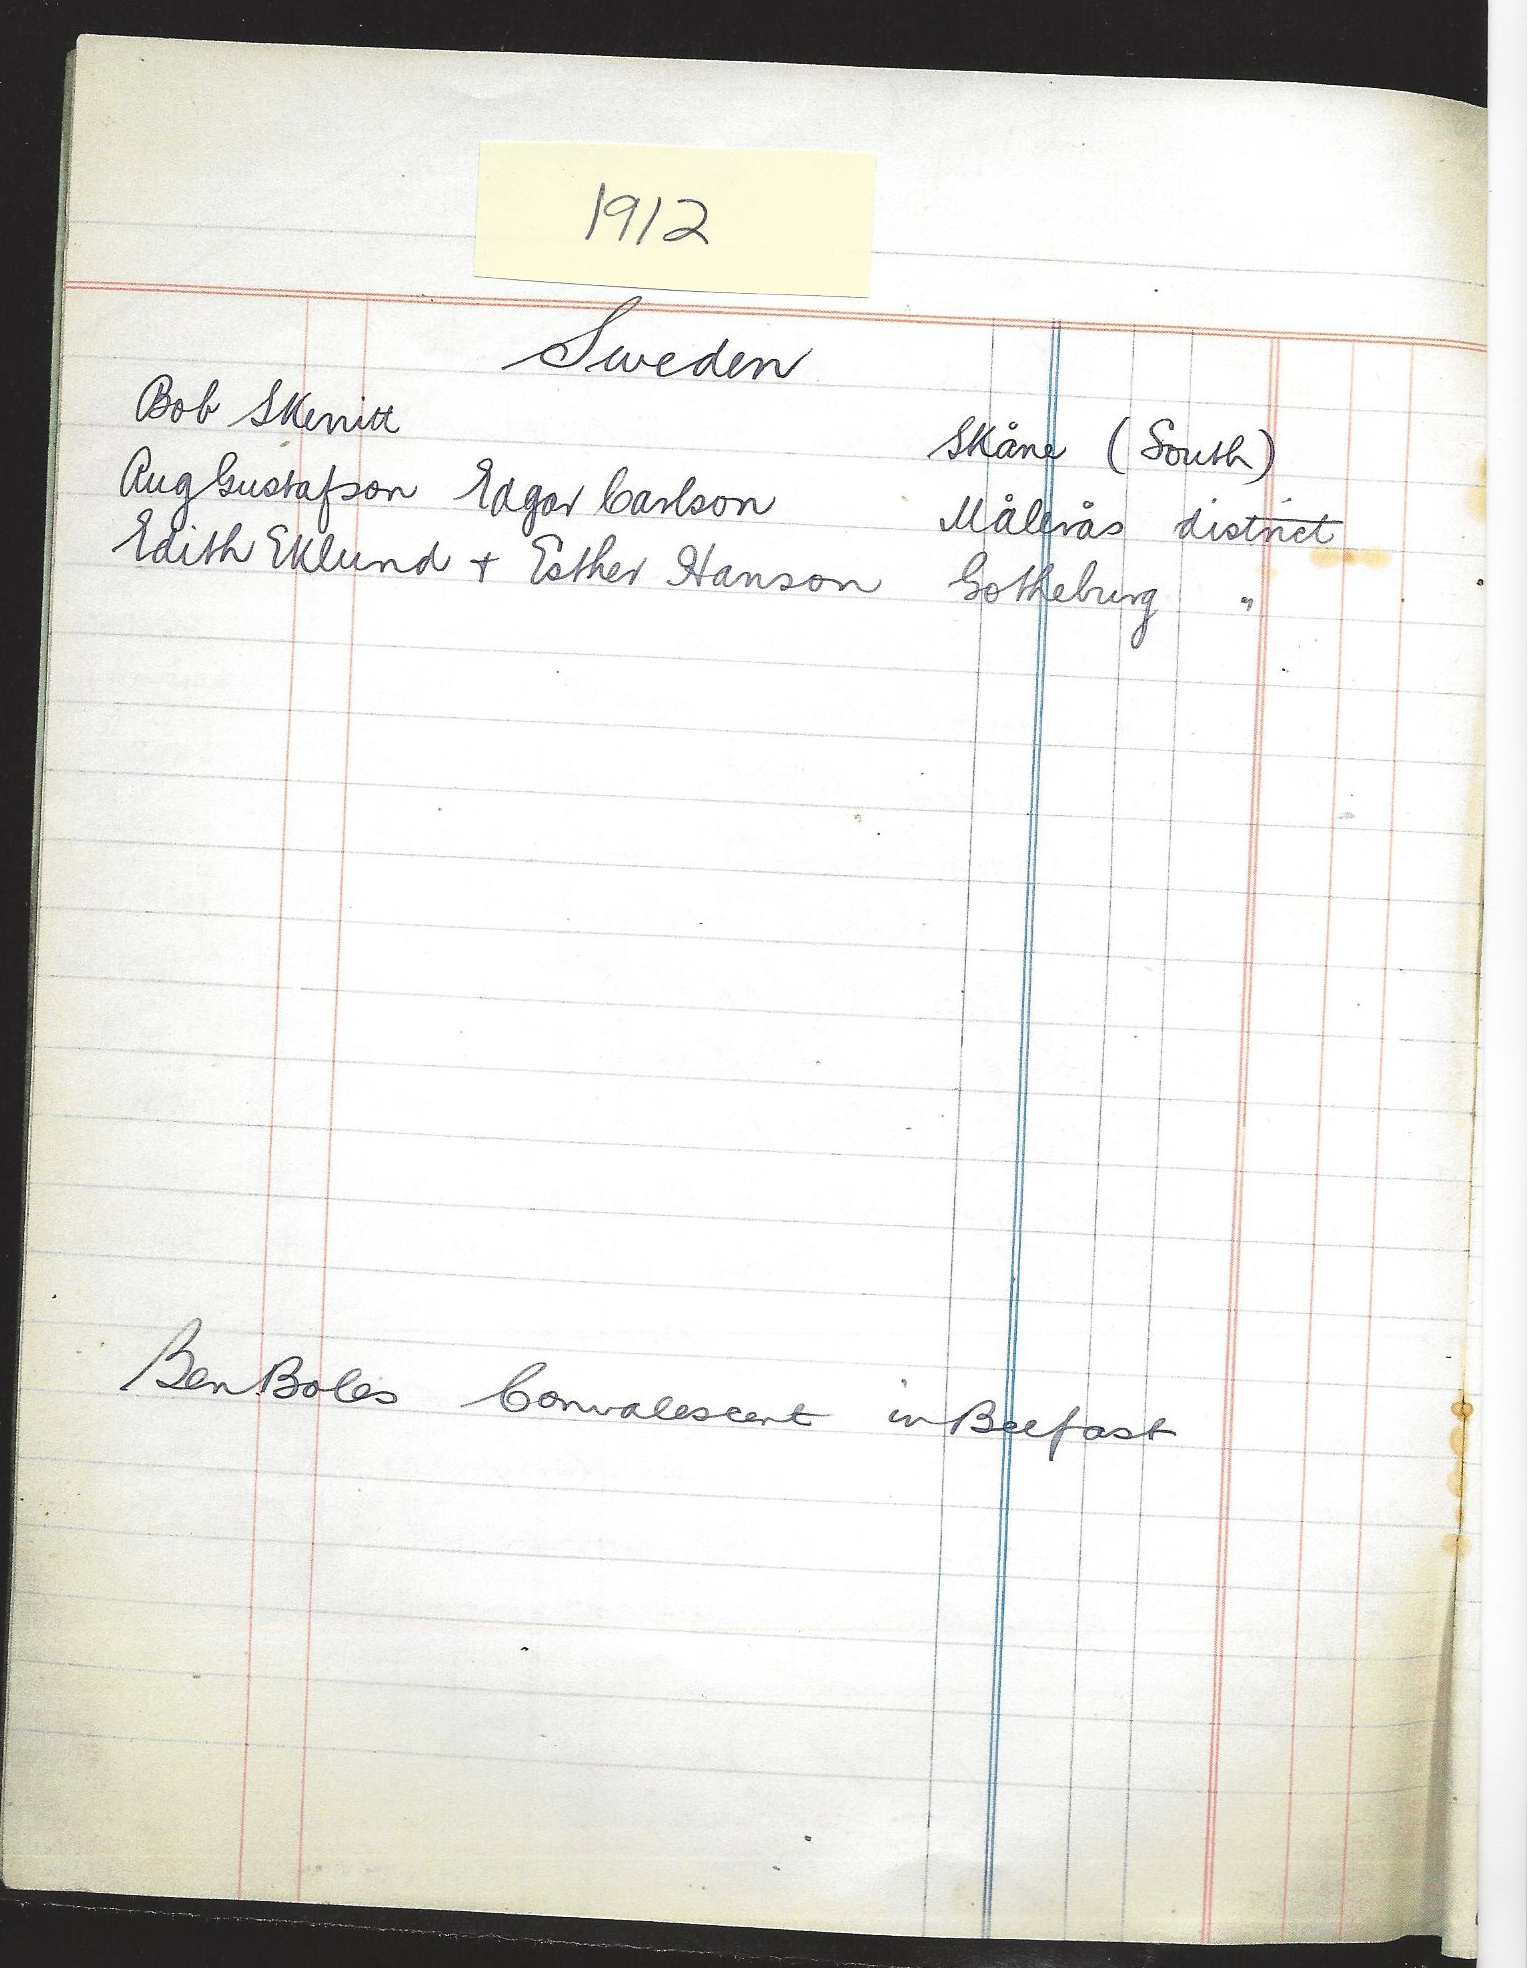 1912
Sweden
Bob Skerritt Skåne (South)
Aug Gustafson Edgar Carlson Målerås district
Edith Eklund + Esther Hanson Gotheburg "
Ben Boles Convalescent in Belfast